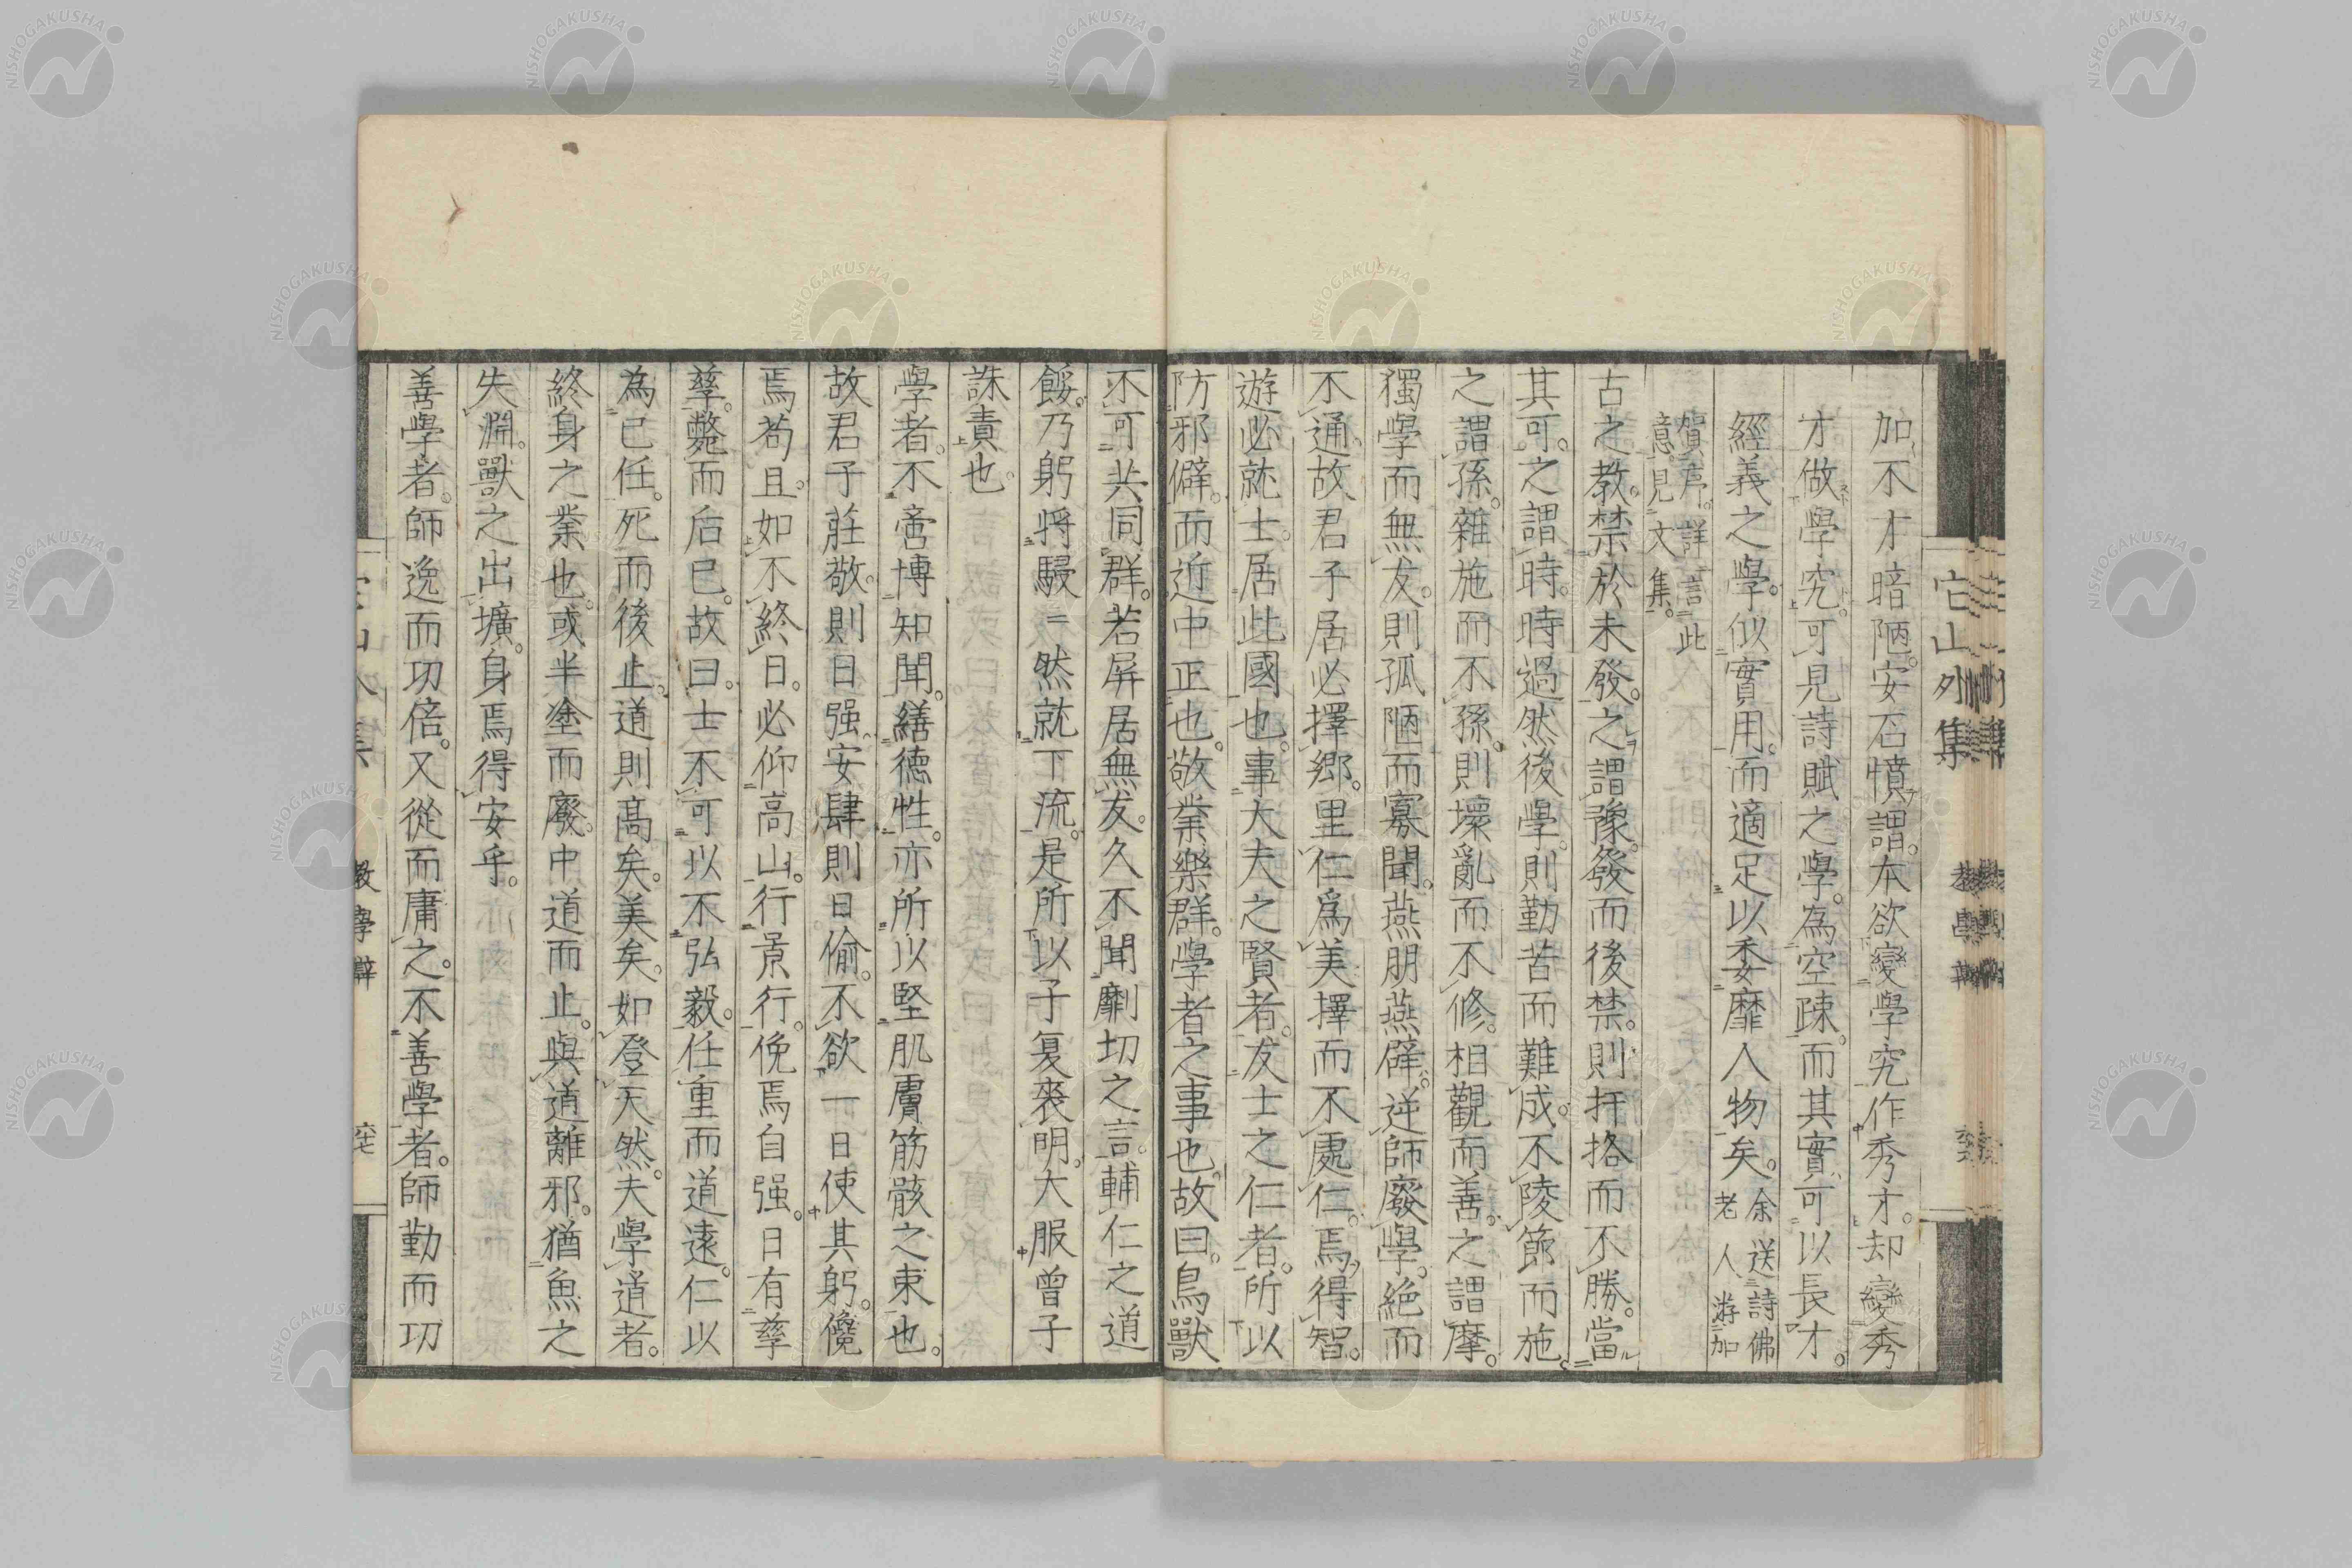 加不才暗陋。安石憤謂。本欲變學究作秀才。却變秀
才做學究。可見詩賦之學。為空疎。而其實可以長才。
經義之學。似實用。而適足以委靡人物矣。余送詩佛老人游加
賀序。詳言此意見文集。
古之教。禁於未發。之謂豫。發而後禁。則扞挌而不勝。當
其可。之謂時。時過然後學。則勤苦而難成。不陵節而施。
之謂孫。雜施而不孫。則壞亂而不修。相觀而善。之謂摩。
獨學而無友。則孤陋而寡聞。燕朋燕辟。逆師廢學。絶而
不通。故君子居必擇鄉。里仁爲美。擇而不處仁。焉得智。
遊必就士。居此國也。事大夫之賢者。友士之仁者。所以
防邪僻。而近中正也。敬業樂群。學者之事也。故曰。鳥獸
不可共同群。若屏居無友。久不聞劘切之言。輔仁之道
餒。乃躬將駸=然就下流。是所以子夏喪明。大服曾子
誅責也。
學者。不啻博知聞。繕德性。亦所以堅肌膚筋骸之束也。
故君子莊敬。則日强。安肆則日偷。不欲一日使其躬。儳
焉苟且。如不終日。必仰高山。行景行。俛焉自强。日有孳
孳。斃而后已。故曰。士不可以不弘毅。任重而道遠。仁以
為己任。死而後止。道則高矣。美矣。如登天然。夫學道者。
終身之業也。或半塗而廢。中道而止。與道離邪。猶魚之
失淵。獸之出壙。身焉得安乎。
善學者。師逸而功倍。又從而庸之。不善學者。師勤而功
它山外集
教學辭
六七